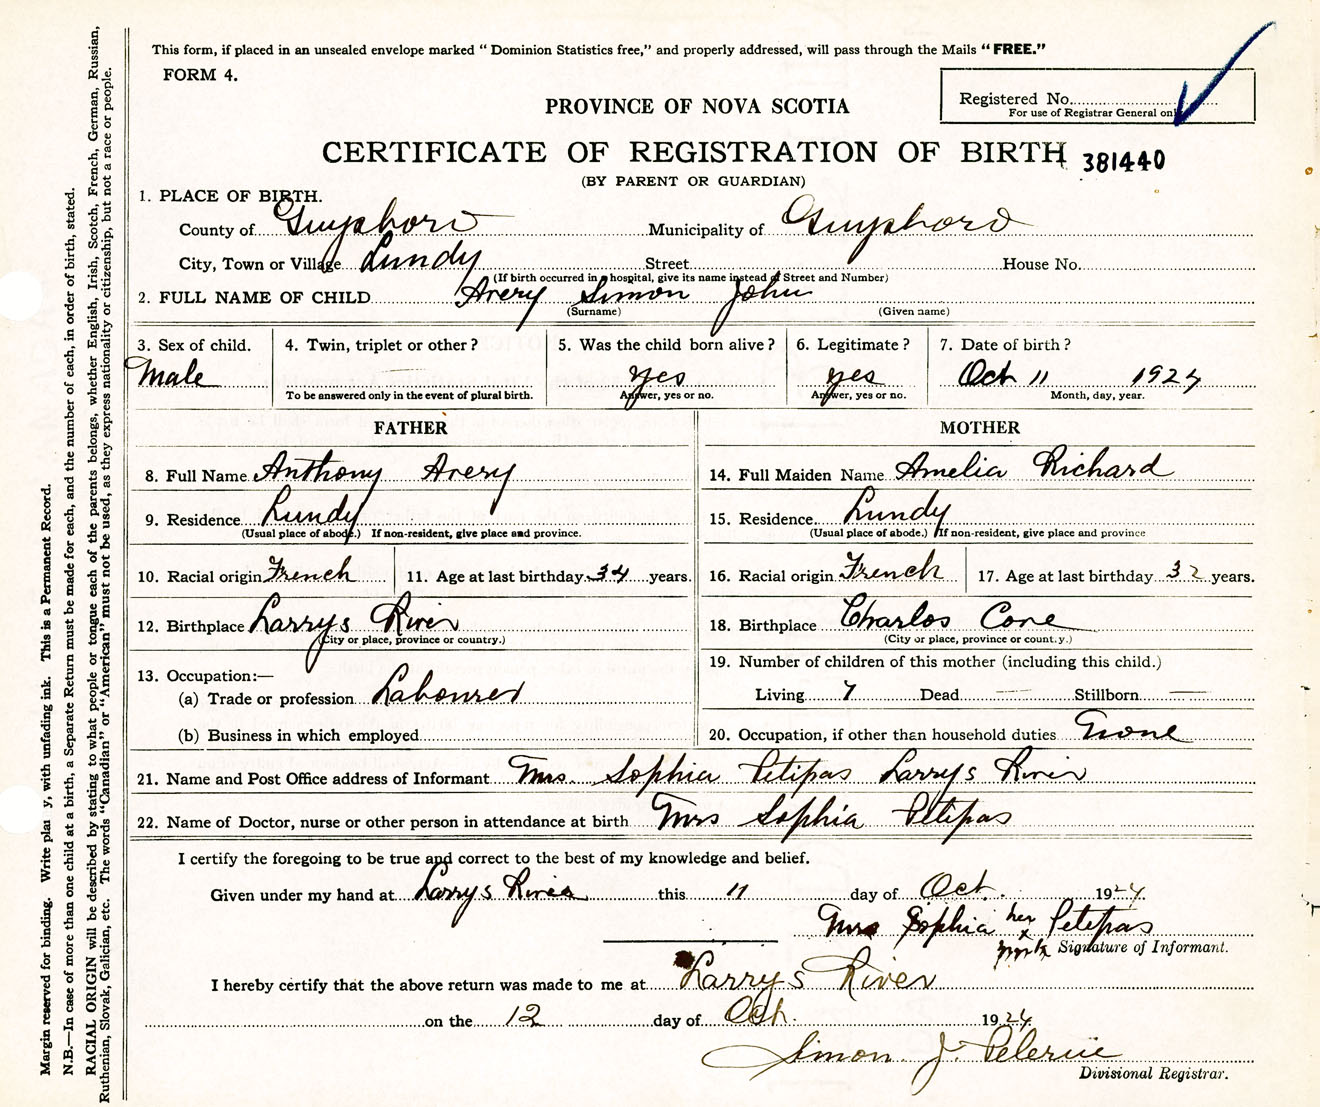 This form, if placed in an unsealed envelope marked “ Dominion Statistics free,” and properly addressed, will pass through the Mails “ FREE.”
FORM 4.
Registered No.
For use of Registrar General only
PROVINCE OF NOVA SCOTIA
CERTIFICATE OF REGISTRATION OF BIRTH 381440
(BY PARENT OR GUARDIAN)
1. PLACE OF BIRTH.
County of Guysboro Municipality of Guysboro
City, Town or Village Lundy Street House No.
(If birth occurred in a hospital, give its name instead of Street and Number)
2. FULL NAME OF CHILD Avery Simon John
(Surname) (Given name)
3. Sex of child. 4. Twin, triplet or other ? 5. Was the child born alive ? 6. Legitimate ? 7. Date of birth ?
Male — yes yes Oct 11 1924
To be answered only in the event of plural birth. Answer, yes or no. Answer, yes or no. Month, day, year.
FATHER MOTHER
8. Full Name Anthony Avery 14. Full Maiden Name Amelia Richard
9. Residence Lundy 15. Residence Lundy
(Usual place of abode.) If non-resident, give place and province. (Usual place of abode.) If non-resident, give place and province
10. Racial origin French 11. Age at last birthday 34 years. 16. Racial origin French 17. Age at last birthday 32 years.
12. Birthplace Larrys River 18. Birthplace Charlos Cove
(City or place, province or country.) (City or place, province or country.)
13. Occupation:— 19. Number of children of this mother (including this child.)
(a) Trade or profession Labourer Living 7 Dead — Stillborn —
(b) Business in which employed 20. Occupation, if other than household duties None
21. Name and Post Office address of Informant Mrs. Sophia Petipas Larrys River
22. Name of Doctor, nurse or other person in attendance at birth Mrs Sophia Petipas
I certify the foregoing to be true and correct to the best of my knowledge and belief.
Given under my hand at Larrys River this 11 day of Oct. 1924.
Mrs Sophia her x mark Petipas
Signature of Informant.
I hereby certify that the above return was made to me at Larrys River
on the 12 day of Oct. 1924.
Simon J. Pelerine
Divisional Registrar.
Margin reserved for binding. Write plai y, with unfading ink. This is a Permanent Record.
N.B.—In case of more than one child at a birth, a Separate Return must be made for each, and the number of each, in order of birth, stated.
RACIAL ORIGIN will be described by stating to what people or tongue each of the parents belongs, whether English, Irish, Scotch, French, German, Russian,
Ruthenian, Slovak, Galician, etc. The words “Canadian” or “American” must not be used, as they express nationality or citizenship, but not a race or people.